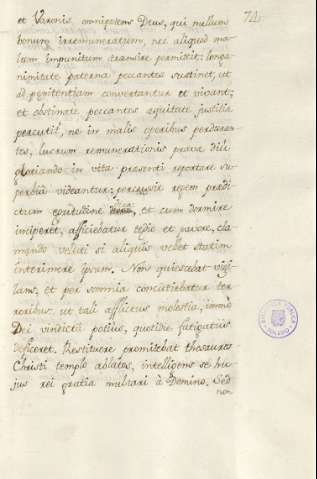 74
et Varonis, omnipotens Deus, qui nullum
bonum irremuneratum, nec aliquod ma-
lum impunitum transire permittit; longa-
nimitate paterna peccantes sustinet, ut
ad penitentiam convertantur et vivant;
et obstinate peccantes equitate justitia
percutit, ne in malis operibus perdura-
tes, lucrum remunerationis prava dili
gloriando in vita presenti reportare su-
perbia videantur; percussit regem predi-
ctum egritudine, et cum dormire
inciperet, afficiebatur tedio et pavore, cla-
mando veluti si aliquis vellet statim
interimere ipsum. Non quiescebat vigi-
lans, et per somnia concutiebatur ter-
roribus, ut tali afflictus molestia, immo
Dei vindicta potius, quotidie fatigatus
deficeret. Restituere promitebat thesauros
Christi templo ablatos, intelligens se hu-
jus rei gratia mulctari à Domino. Sed
non